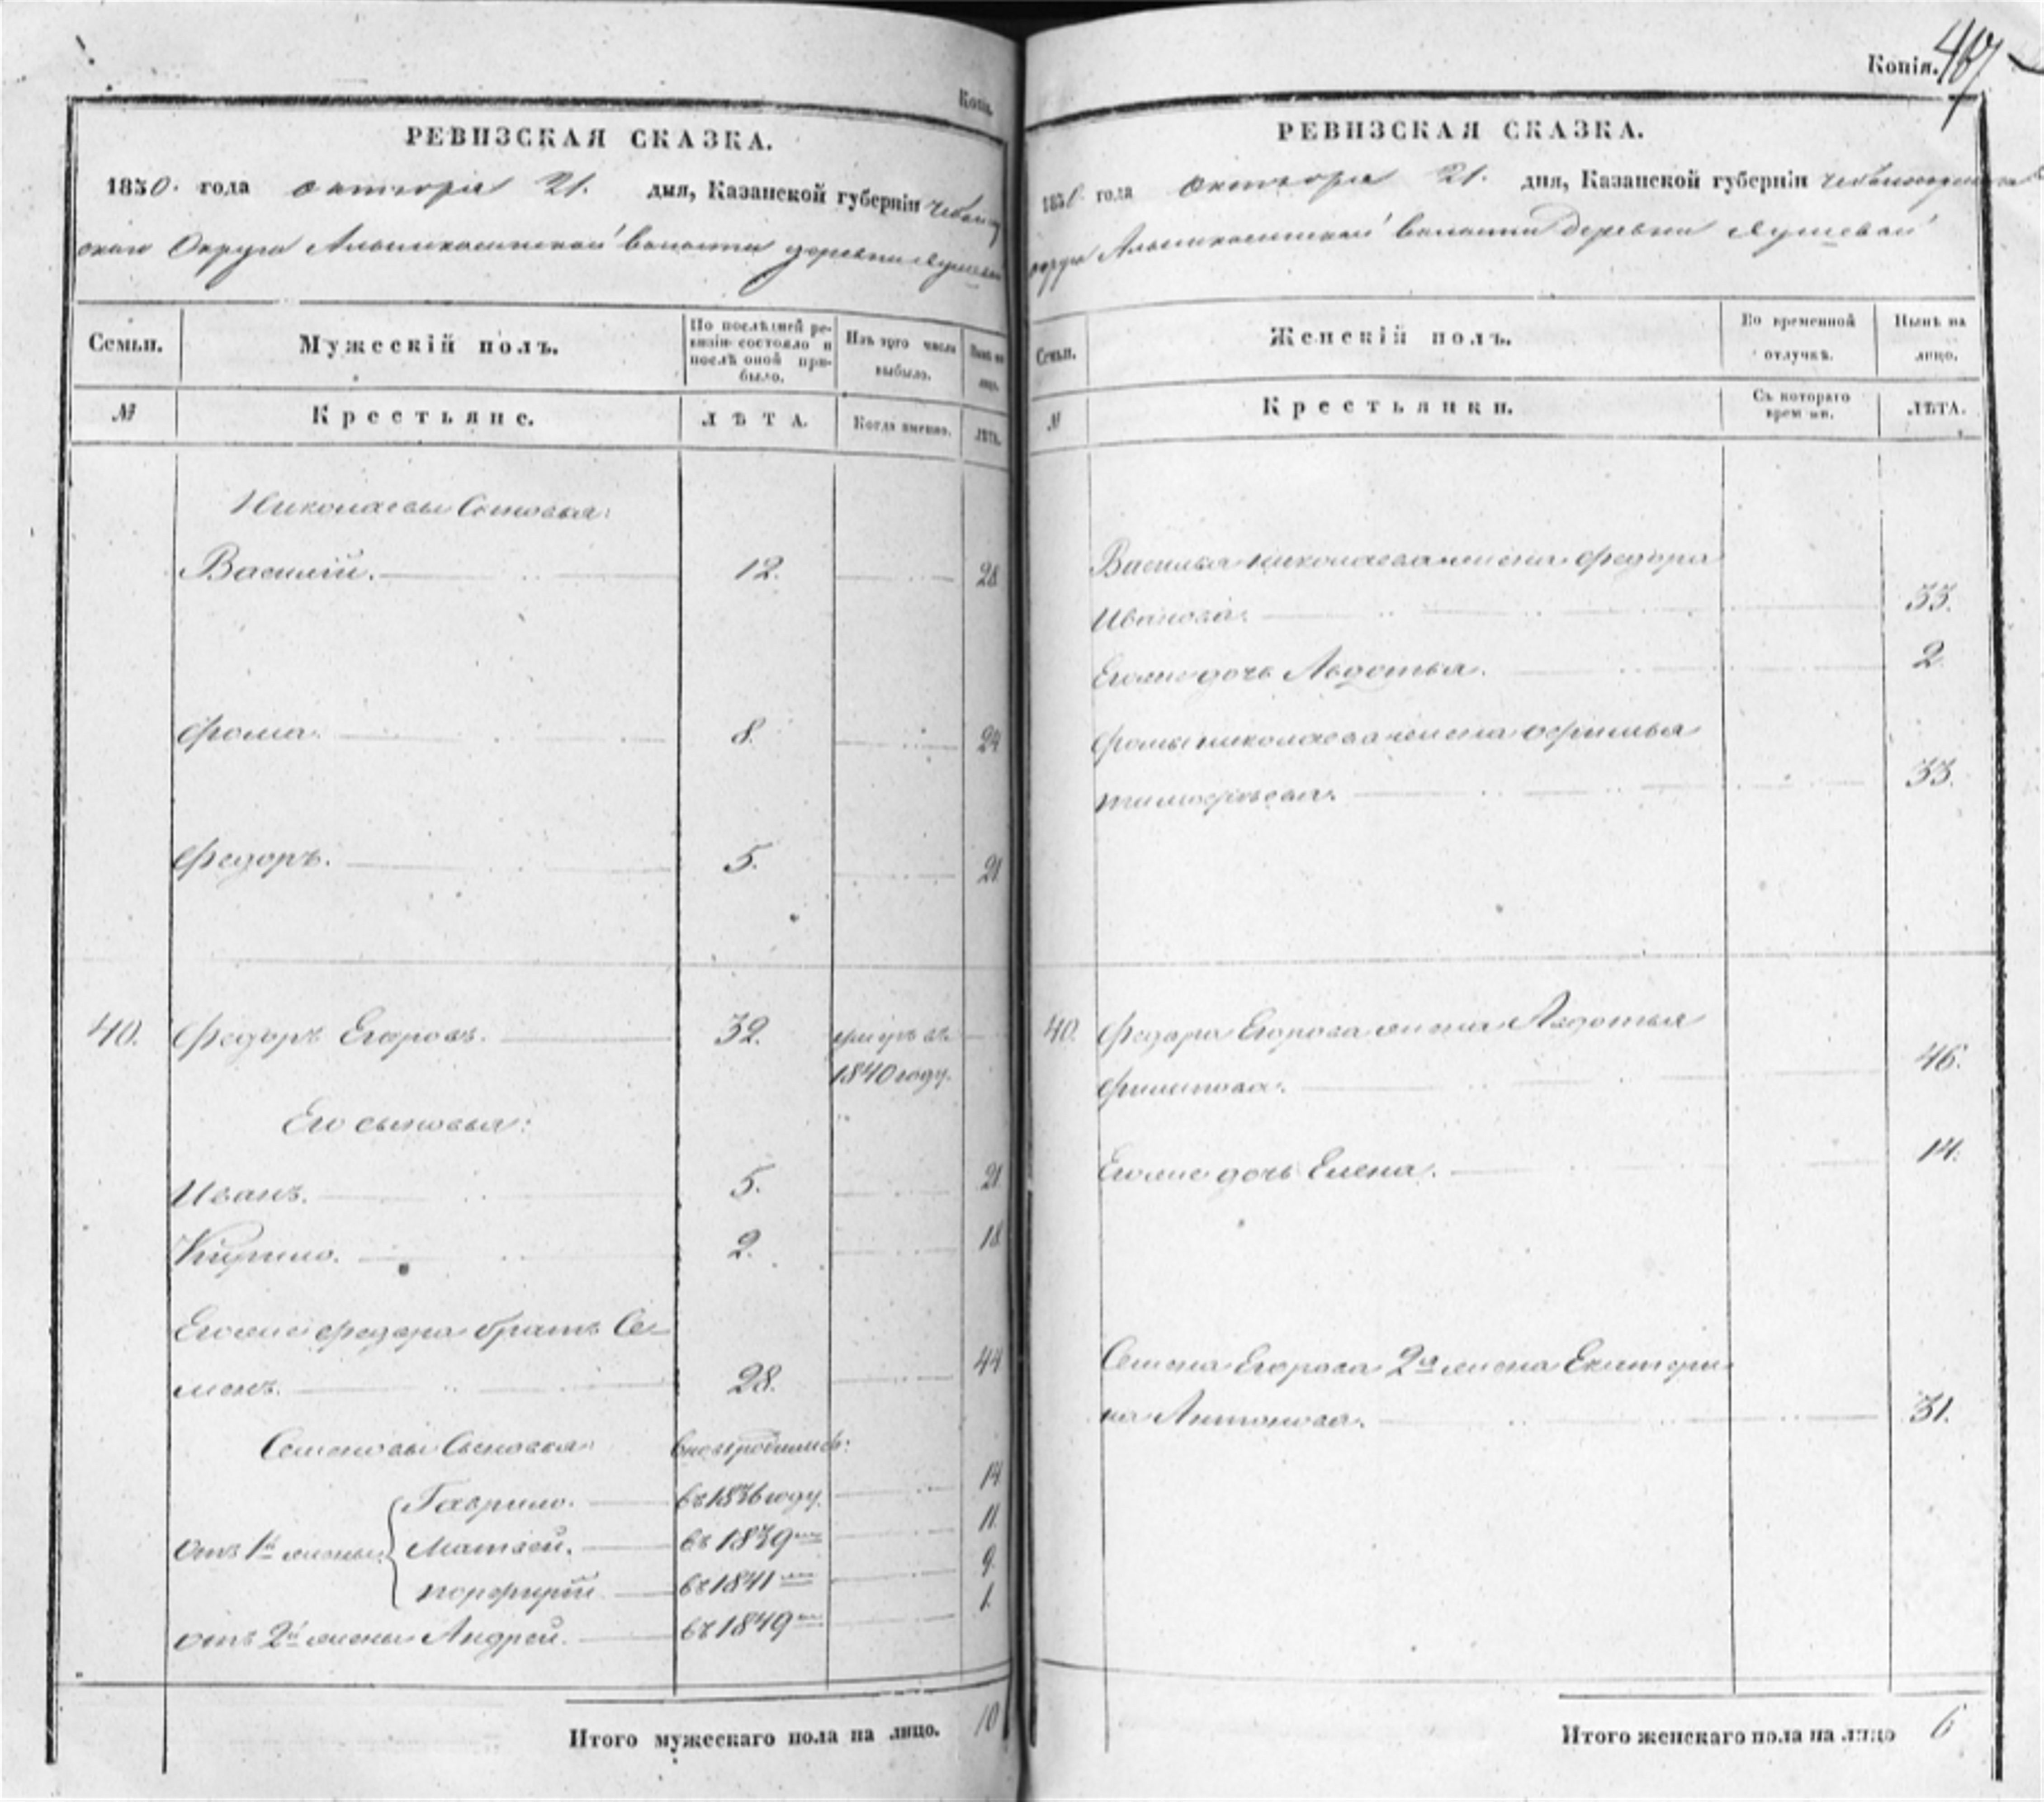 Копія.
РЕВИЗСКАЯ СКАЗКА.
1850. года октября 21. дня, Казанской губерніи
скаго Округа волости деревни
Семьи.
Мужескій полъ.
По послѣдней ревизіи состояло и послѣ оной прибыло.
Изъ того числа выбыло.
Нынѣ на лицо.
№
Крестьяне.
ЛѢТА.
Когда именно.
ЛѢТА.
Николаевы Сыновья:
Василій. 12. 28
Фома. 8. 24
Федоръ. 5. 21
40. Федоръ Егоровъ. 32. умре въ
1840 году.
Его сыновья:
Иванъ. 5. 21
Кирило. 2. 18
Егоже Федора братъ Се-
менъ. 28. 44
Семеновы Сыновья вновь родились:
Гаврило. въ 1836 году. 14
отъ 1й жены Матвей. въ 1839 11.
Порфирій въ 1841 9.
отъ 2й жены Андрей. въ 1849 1.
Итого мужескаго пола на лицо. 10
Копія. 467
РЕВИЗСКАЯ СКАЗКА.
1850 года октября 21. дня, Казанской губерніи
волости Деревни
Семьи.
Женскій полъ.
Во временной отлучкѣ.
Нынѣ на лицо.
№
Крестьянки.
Съ котораго времени.
ЛѢТА.
Василья Николаева жена Федора
Иванова. 33.
Егоже дочь Авдотья. 2
Фомы Николаева жена Офимья
Тимофѣева. 33.
40. Федора Егорова жена Авдотья
Филипова. 46.
Егоже дочь Елена. 14.
Семена Егорова 2я жена Екатери-
на Антонова. 31.
Итого женскаго пола на лицо 6